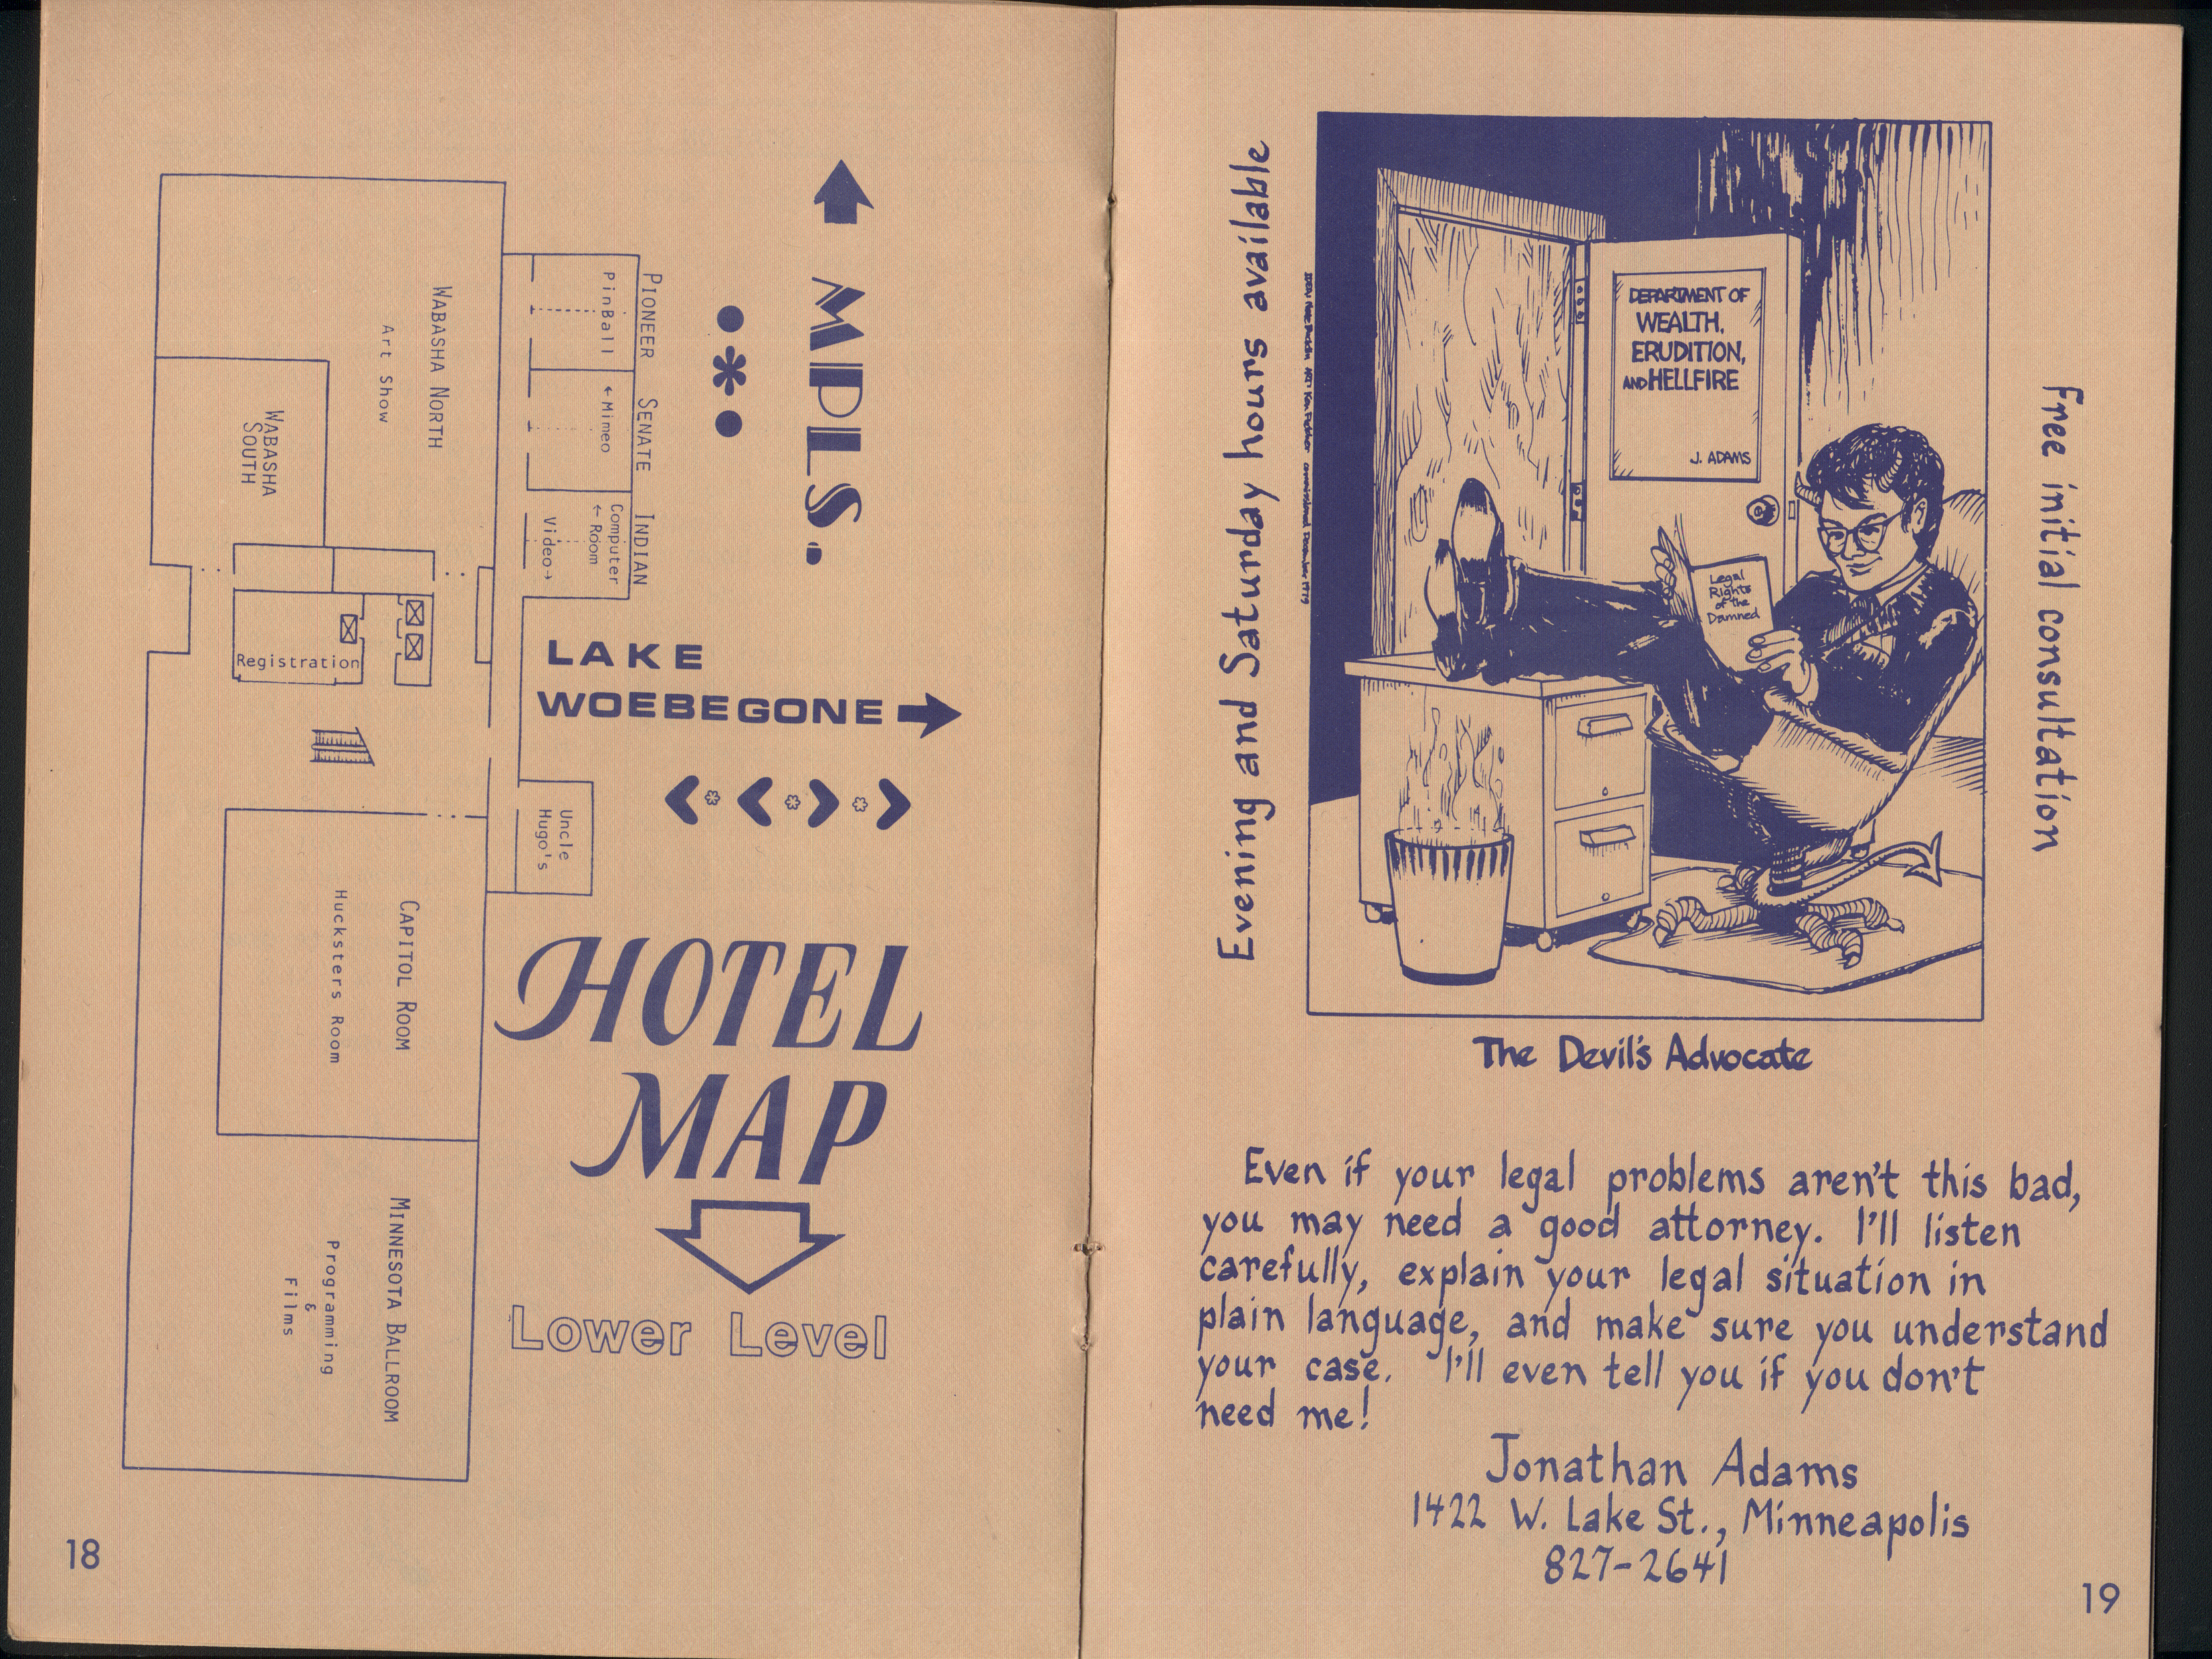 MPLS.
LAKE
WOEBEGONE
HOTEL
MAP
Lower Level
PIONEER
PinBall
SENATE
←Mimeo
INDIAN
Computer
←Room
Video→
WABASHA NORTH
Art Show
WABASHA
SOUTH
Registration
Uncle
Hugo's
CAPITOL ROOM
Hucksters Room
MINNESOTA BALLROOM
Programming
&
Films
18
Evening and Saturday hours available
Free initial consultation
DEPARTMENT OF
WEALTH,
ERUDITION,
AND HELLFIRE
J. ADAMS
Legal
Rights
of the
Damned
The Devil's Advocate
Even if your legal problems aren't this bad,
you may need a good attorney. I'll listen
carefully, explain your legal situation in
plain language, and make sure you understand
your case. I'll even tell you if you don't
need me!
Jonathan Adams
1422 W. Lake St., Minneapolis
827-2641
19